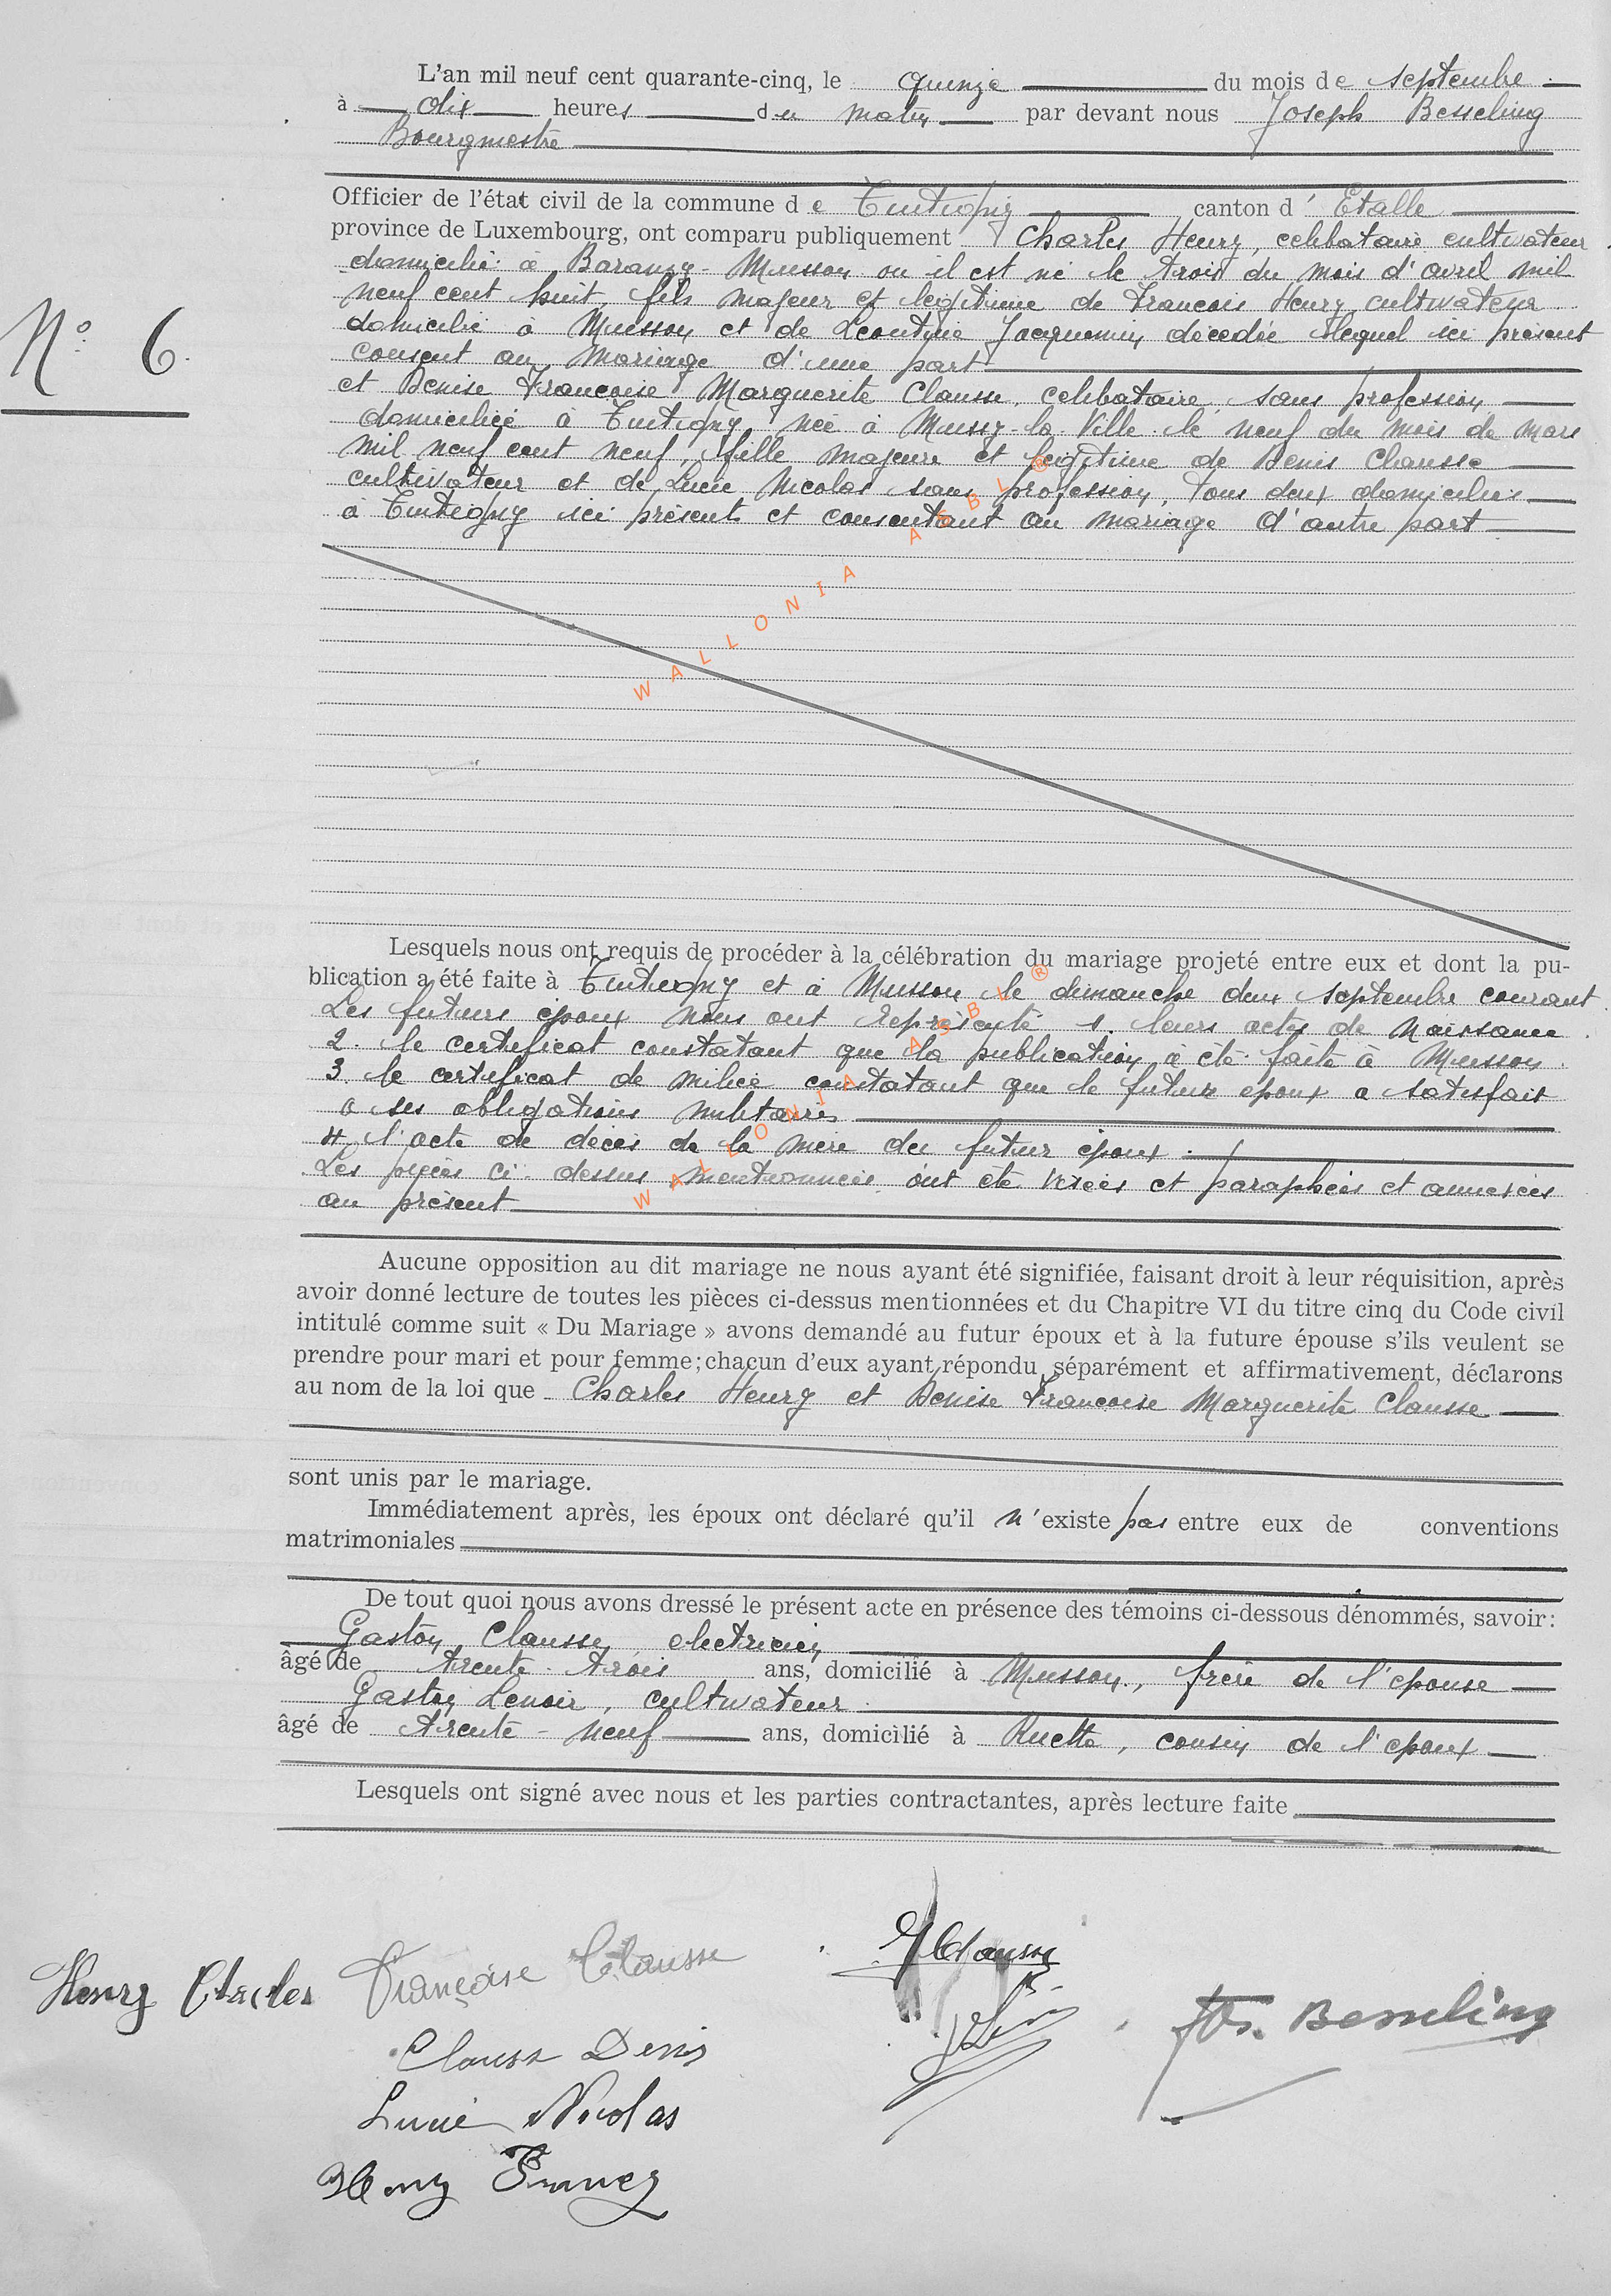 L'an mil neuf cent quarante-cinq, le quinze du mois de septembre
à dix heures du matin par devant nous Joseph Besseling
Bourgmestre
Officier de l'état civil de la commune de Tintigny canton d'Etalle
province de Luxembourg, ont comparu publiquement Charles Henry, celibataire cultivateur
domicilié à Baranzy-Musson ou il est né le trois du mois d'avril mil
neuf cent huit, fils majeur et legitime de Francois Henry cultivateur
domicilié à Musson et de Leontine Jacquemin décedée lequel ici présent
consent au mariage d'une part
N° 6.
et Denise Francoise Marguerite Clausse, celibataire, sans profession
domiciliée à Tintigny, née à Mussy-la-Ville le neuf du mois de mars
mil neuf cent neuf, fille majeure et legitime de Denis Clausse
cultivateur et de Lucie Nicolas sans profession, tous deux domiciliés
à Tintigny ici présents et consentant au mariage d'autre part
WALLONIA ASBL ®
Lesquels nous ont requis de procéder à la célébration du mariage projeté entre eux et dont la pu-
blication a été faite à Tintigny et à Musson le dimanche deux septembre courant
Les futurs époux nous ont représenté 1. leurs actes de naissance
2. le certificat constatant que la publication a été faite à Musson.
3. le certificat de milice constatant que le futur epoux a satisfait
a ses obligations militaires
4. l'acte de décès de la mère du futur époux.
Les pièces ci-dessus mentionnées ont été visées et paraphées et annexées
au présent
WALLONIA ASBL ®
Aucune opposition au dit mariage ne nous ayant été signifiée, faisant droit à leur réquisition, après
avoir donné lecture de toutes les pièces ci-dessus mentionnées et du Chapitre VI du titre cinq du Code civil
intitulé comme suit « Du Mariage » avons demandé au futur époux et à la future épouse s'ils veulent se
prendre pour mari et pour femme; chacun d'eux ayant répondu séparément et affirmativement, déclarons
au nom de la loi que Charles Henry et Denise Francoise Marguerite Clausse
sont unis par le mariage.
Immédiatement après, les époux ont déclaré qu'il n'existe pas entre eux de conventions
matrimoniales
De tout quoi nous avons dressé le présent acte en présence des témoins ci-dessous dénommés, savoir:
Gaston Clausse, electricien
âgé de trente-trois ans, domicilié à Musson, frère de l'epouse
Gaston Lenoir, cultivateur
âgé de trente-neuf ans, domicilié à Ruette, cousin de l'epoux
Lesquels ont signé avec nous et les parties contractantes, après lecture faite
Henry Charles Françoise Clausse G Clausse
Jos. Besseling
Clausse Denis
Lucie Nicolas
Henry